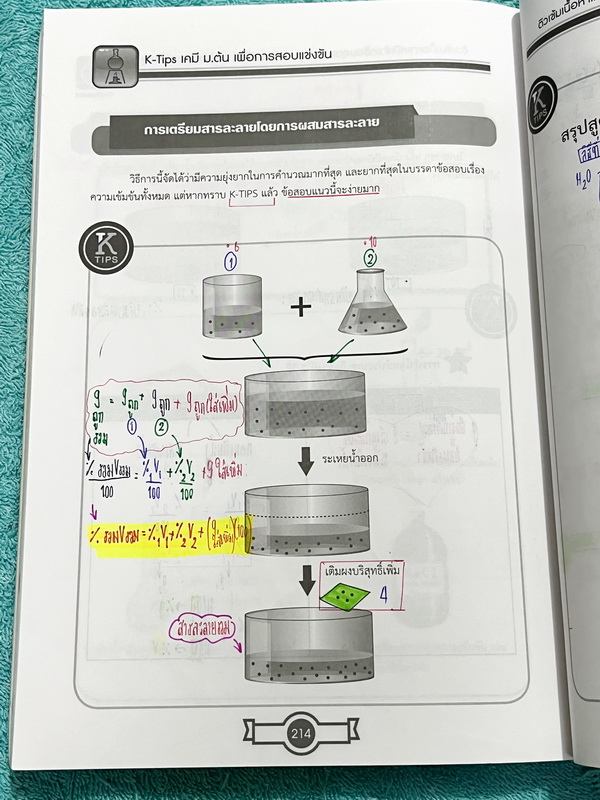 K-Tips เคมี ม.ต้น เพื่อการสอบแข่งขัน
การเตรียมสารละลายโดยการผสมสารละลาย
วิธีการนี้จัดได้ว่ามีความยุ่งยากในการคำนวณมากที่สุด และยากที่สุดในบรรดาข้อสอบเรื่อง
ความเข้มข้นทั้งหมด แต่หากทราบ K-TIPS แล้ว ข้อสอบแนวนี้จะง่ายมาก
K
TIPS
6
10
1
2
+
g ถูก รวม = g ถูก + g ถูก + g ถูก (ใส่เพิ่ม)
1 2
% รวม V รวม / 100 = %₁V₁ / 100 + %₂V₂ / 100 + g ใส่เพิ่ม
ระเหยน้ำออก
% รวม V รวม = %₁V₁ + %₂V₂ + (g ใส่เพิ่ม)(100)
เติมผงบริสุทธิ์เพิ่ม
4
สารละลายรวม
214
K
TIPS
H₂O